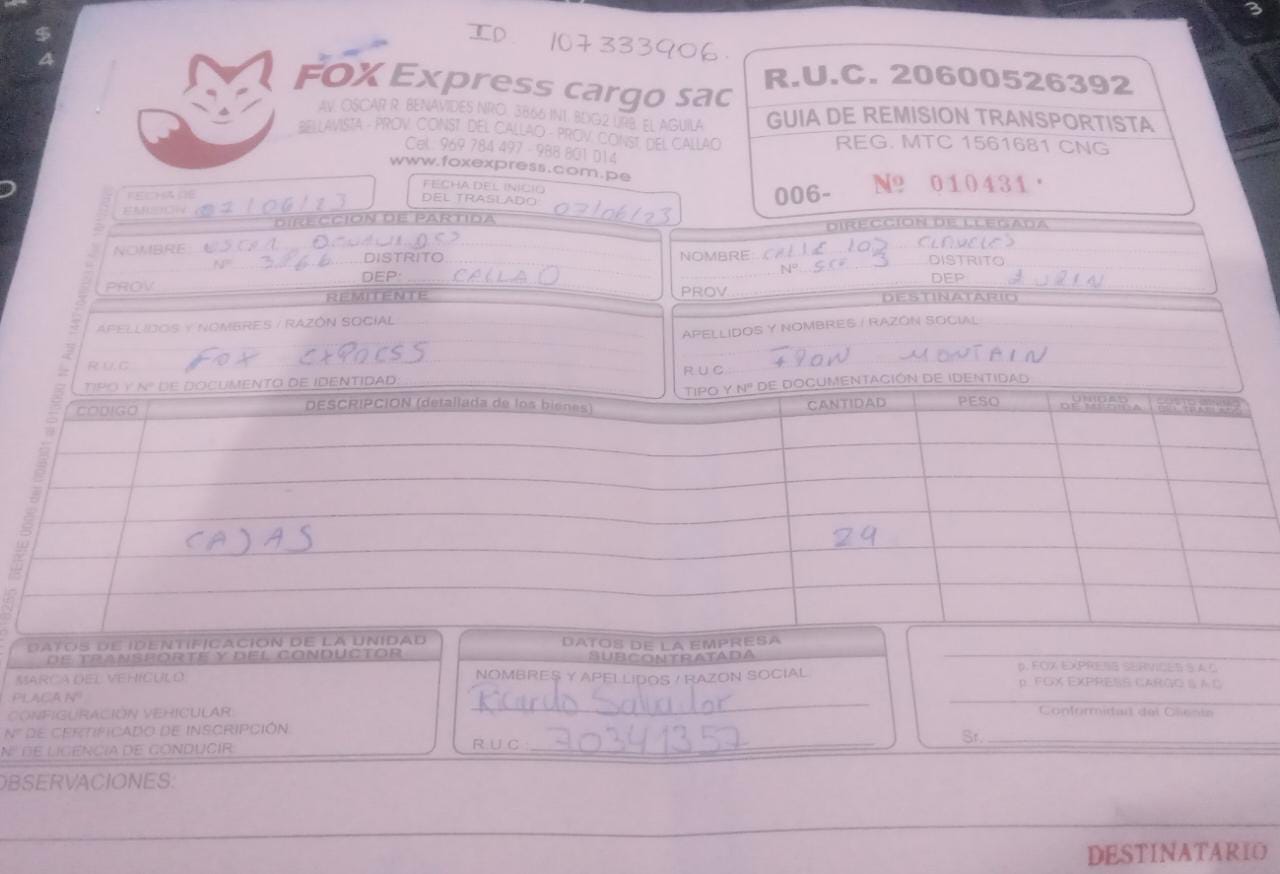 ID 107333906.
FOX Express cargo sac
AV. OSCAR R. BENAVIDES NRO. 3866 INT. BDG2 URB. EL AGUILA
BELLAVISTA - PROV. CONST. DEL CALLAO - PROV. CONST. DEL CALLAO
Cel. 969 784 497 - 988 801 014
www.foxexpress.com.pe
R.U.C. 20600526392
GUIA DE REMISION TRANSPORTISTA
REG. MTC 1561681 CNG
006- Nº 010431
FECHA DE EMISION: 07/06/23
FECHA DEL INICIO DEL TRASLADO: 07/06/23
DIRECCION DE PARTIDA
NOMBRE: OSCAR BENAVIDES
Nº 3866 DISTRITO
PROV. DEP: CALLAO
DIRECCION DE LLEGADA
NOMBRE: CALLE 107 CLAVELES
Nº 3 DISTRITO
PROV. DEP: LURIN
REMITENTE
APELLIDOS Y NOMBRES / RAZÓN SOCIAL:
R.U.C. FOX EXPRESS
TIPO Y Nº DE DOCUMENTO DE IDENTIDAD:
DESTINATARIO
APELLIDOS Y NOMBRES / RAZÓN SOCIAL:
R.U.C. IRON MONTAIN
TIPO Y Nº DE DOCUMENTACIÓN DE IDENTIDAD:
CODIGO DESCRIPCION (detallada de los bienes) CANTIDAD PESO UNIDAD DE MEDIDA COSTO MINIMO DEL TRASLADO
CAJAS 29
DATOS DE IDENTIFICACION DE LA UNIDAD
DE TRANSPORTE Y DEL CONDUCTOR
MARCA DEL VEHICULO:
PLACA Nº
CONFIGURACIÓN VEHICULAR:
Nº DE CERTIFICADO DE INSCRIPCIÓN:
Nº DE LICENCIA DE CONDUCIR:
DATOS DE LA EMPRESA
SUBCONTRATADA
NOMBRES Y APELLIDOS / RAZON SOCIAL:
Ricardo Salvador
R.U.C.: 70341357
p. FOX EXPRESS SERVICES S.A.C.
p. FOX EXPRESS CARGO S.A.C.
Conformidad del Cliente
Sr.
OBSERVACIONES:
DESTINATARIO